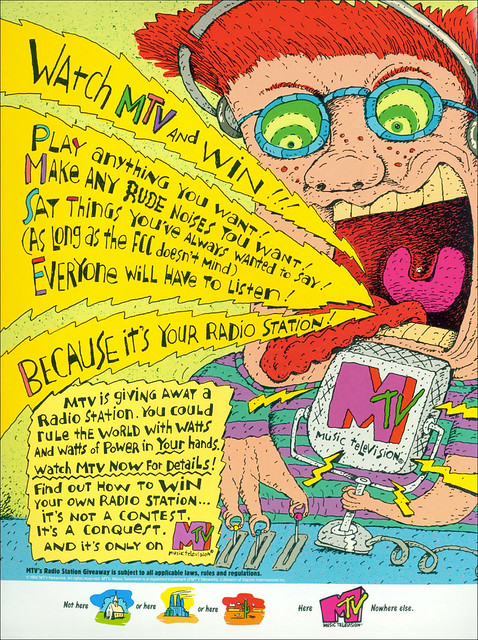 WATCH MTV AND WIN!!!
PLAY anything YOU WANT!
MAKE ANY RUDE NOISES YOU WANT!
SAY THINGS YOU'VE ALWAYS WANTED to SAY!
(AS LONG as the FCC doesn't MIND)
EVERYONE WILL HAVE TO LISTEN!
BECAUSE IT'S YOUR RADIO STATION!
MTV is GIVING AWAY A
RADIO STATION. YOU COULD
RULE the WORLD WITH WATTS
AND WATTS OF POWER IN YOUR hands.
WATCH MTV NOW FOR DETAILS!
FIND OUT HOW TO WIN
YOUR OWN RADIO STATION...
IT'S NOT A CONTEST,
IT'S A CONQUEST.
AND it's ONLY ON MTV
MUSIC TELEVISION®
MTV
MUSIC TELEVISION
MTV's Radio Station Giveaway is subject to all applicable laws, rules and regulations.
Not here or here or here Here MTV Nowhere else.
MUSIC TELEVISION